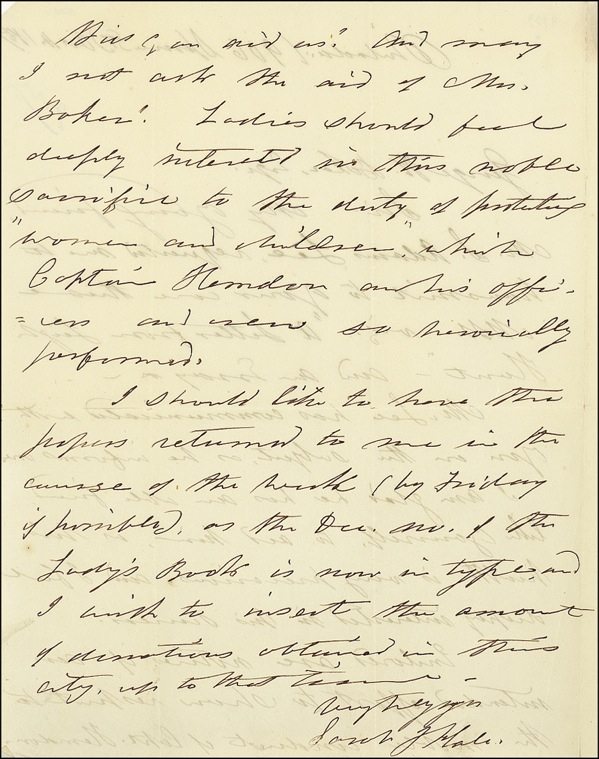 you aid us? And may
I not ask the aid of Mrs.
Baker? Ladies should feel
deeply interest'd in this noble
sacrifice to the duty of protecting
"women and children," which
Captain Herndon and his offi-
=cers and crew so heroically
performed.
I should like to have the
papers returned to me in the
course of the week (by Friday
if possible), as the Dec. no. of the
Lady's Book is now in type, and
I wish to insert the amount
of donations obtained in this
city, up to that time –
Very truly yrs
Sarah J Hale.